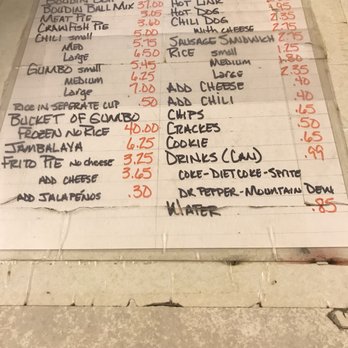 BOUDIN BALL MIX 37.00
MEAT PIE 3.05
CRAWFISH PIE 3.60
CHILI small 5.00
MED 5.75
Large 6.50
GUMBO small 5.45
MEDIUM 6.25
Large 7.00
RICE IN SEPERATE CUP .50
BUCKET OF GUMBO
FROZEN NO RICE 40.00
JAMBALAYA 6.25
FRITO PIE NO cheese 3.25
ADD CHEESE 3.65
ADD JALAPEÑOS .30
HOT LINK
HOT DOG 1.95
CHILI DOG 2.35
WITH CHEESE 2.75
SAUSAGE SANDWICH 2.75
RICE small 1.25
Medium
Large 2.35
ADD CHEESE .40
ADD CHILI .40
CHIPS .65
CRACKES .50
COOKIE .65
DRINKS (CAN) .99
COKE-DIET COKE-SPRITE
DR PEPPER-MOUNTAIN DEW
WATER .85